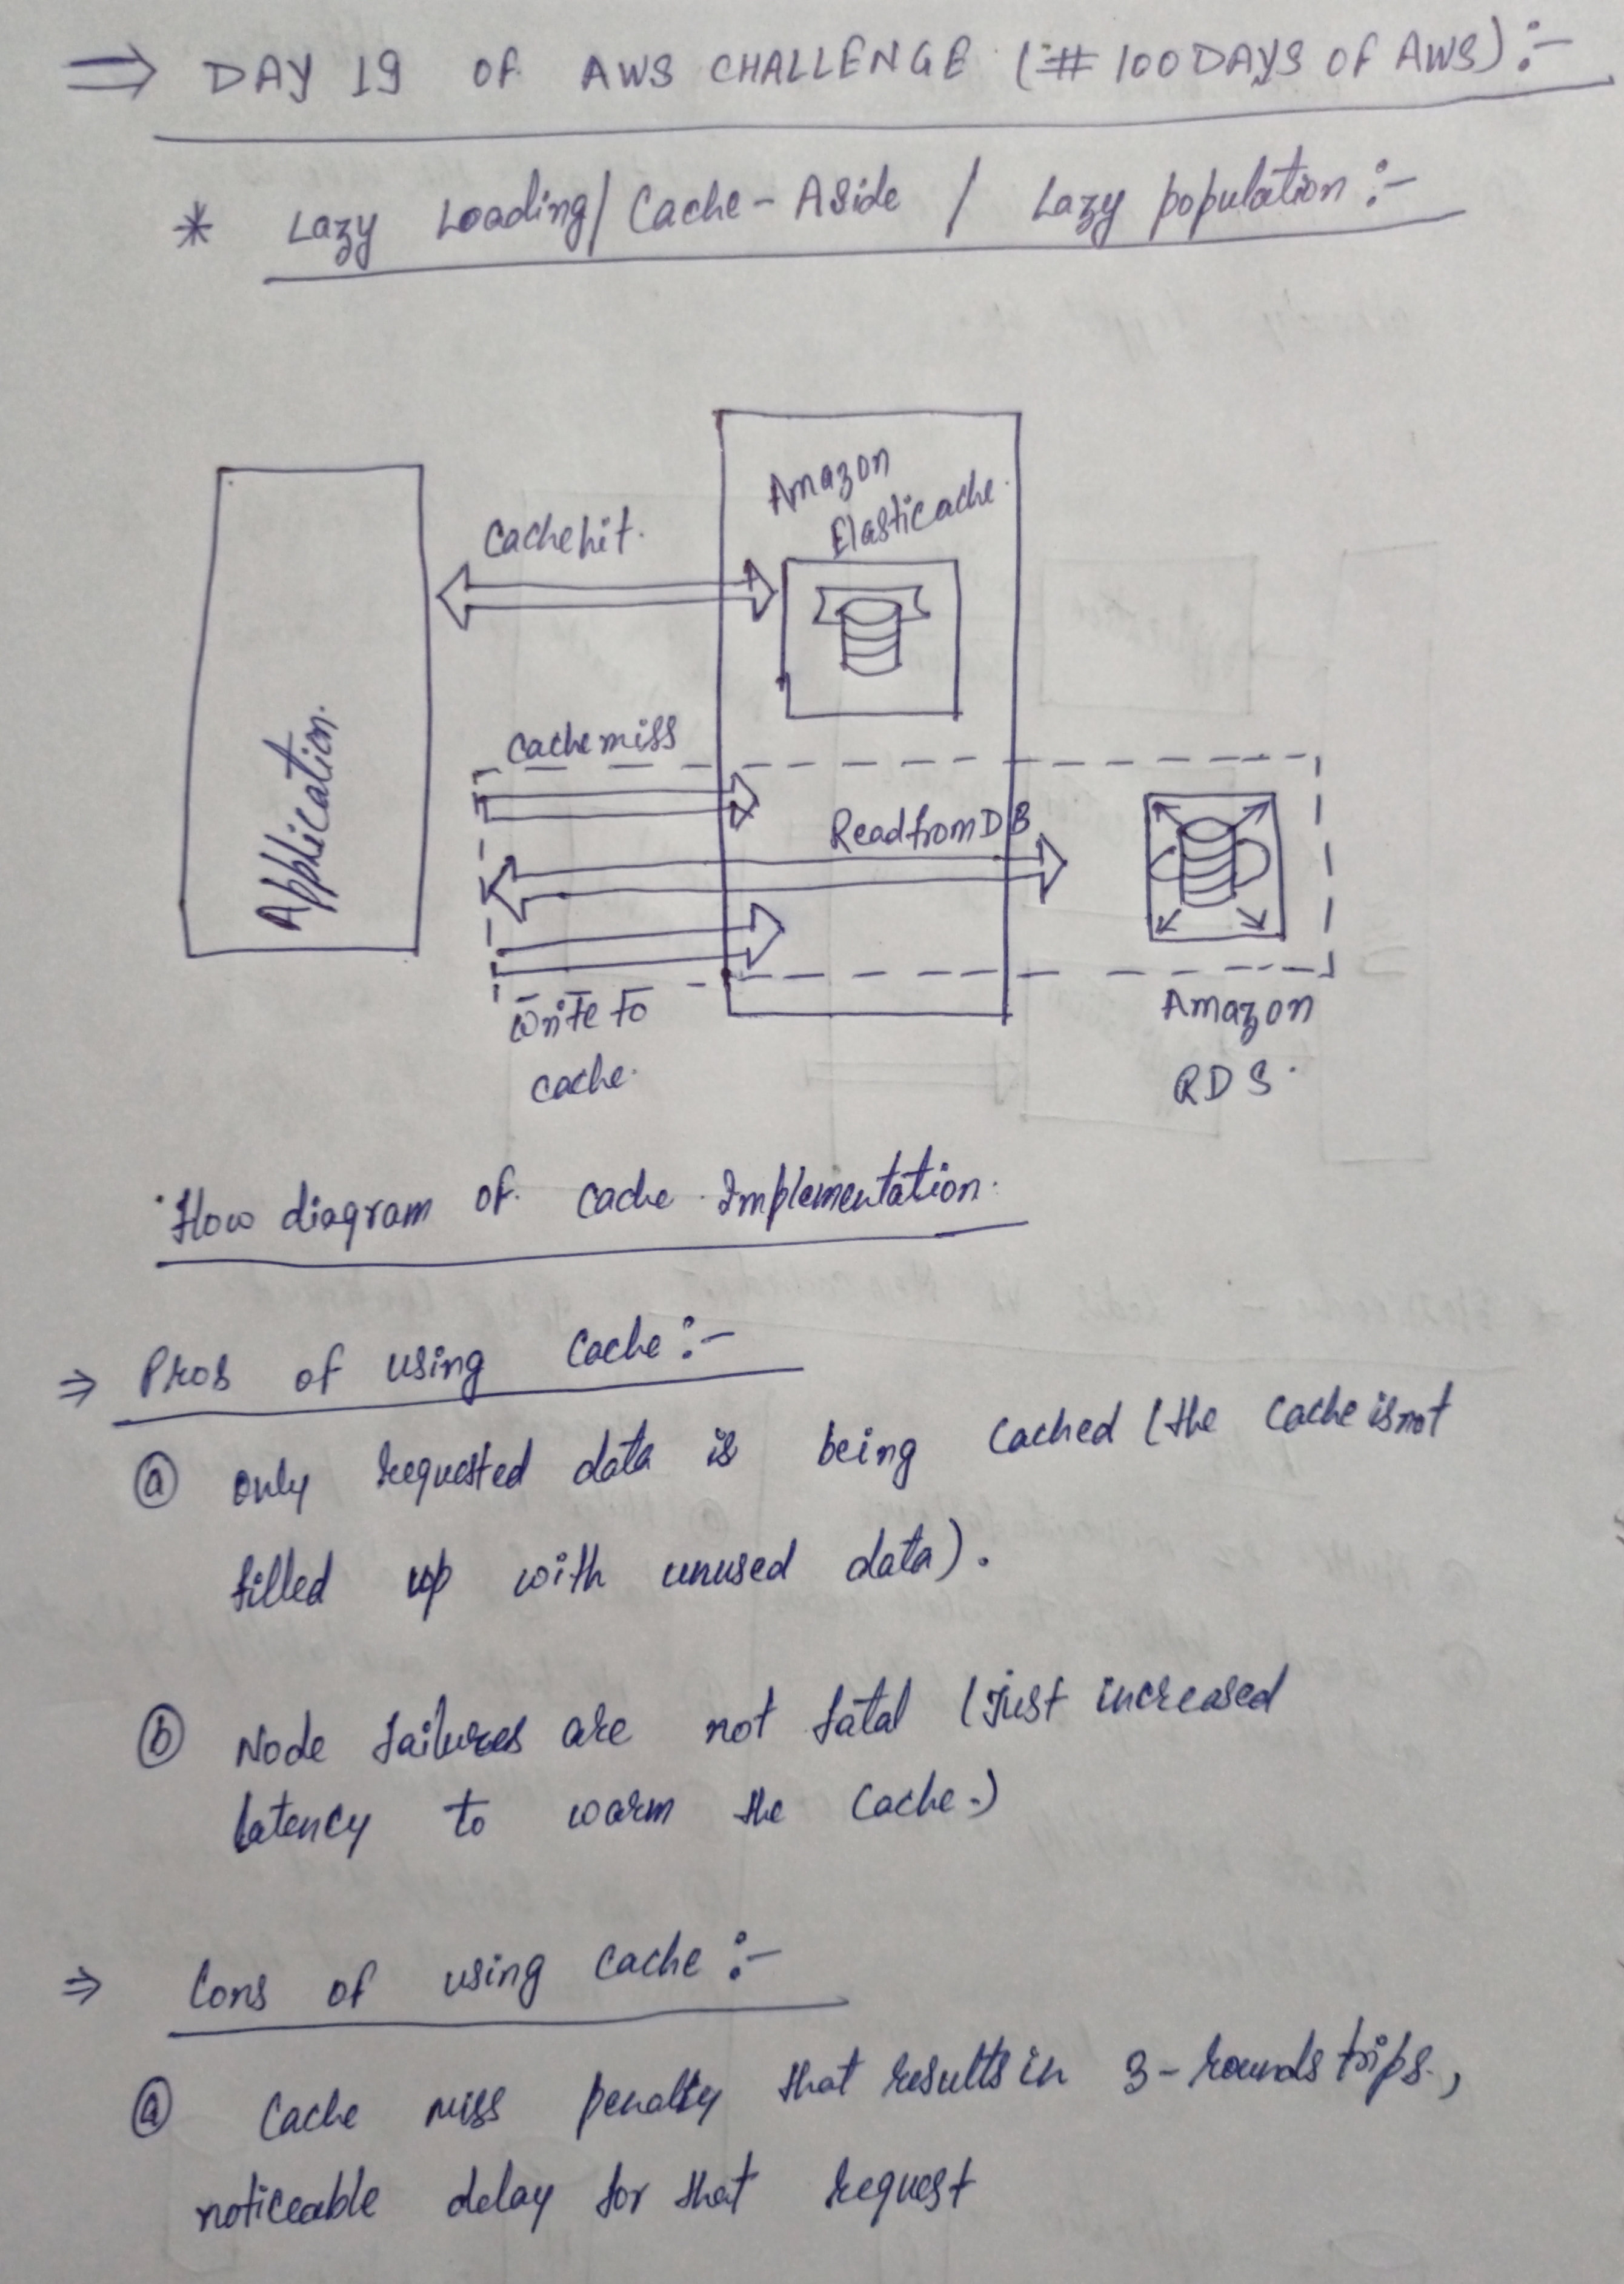 ⇒ DAY 19 OF AWS CHALLENGE (#100DAYS OF AWS):-
* Lazy Loading/Cache-Aside / Lazy population:-
Amazon
Elasticache.
Cachehit.
Application.
Cachemiss
ReadfromDB
Write to
cache.
Amazon
RDS.
Flow diagram of cache Implementation.
⇒ Pros of using Cache:-
ⓐ Only requested data is being Cached (the Cache is not
filled up with unused data).
ⓑ Node failures are not fatal (Just increased
latency to warm the Cache.)
⇒ Cons of using Cache:-
ⓐ Cache miss penalty that results in 3-rounds trips.,
noticeable delay for that request